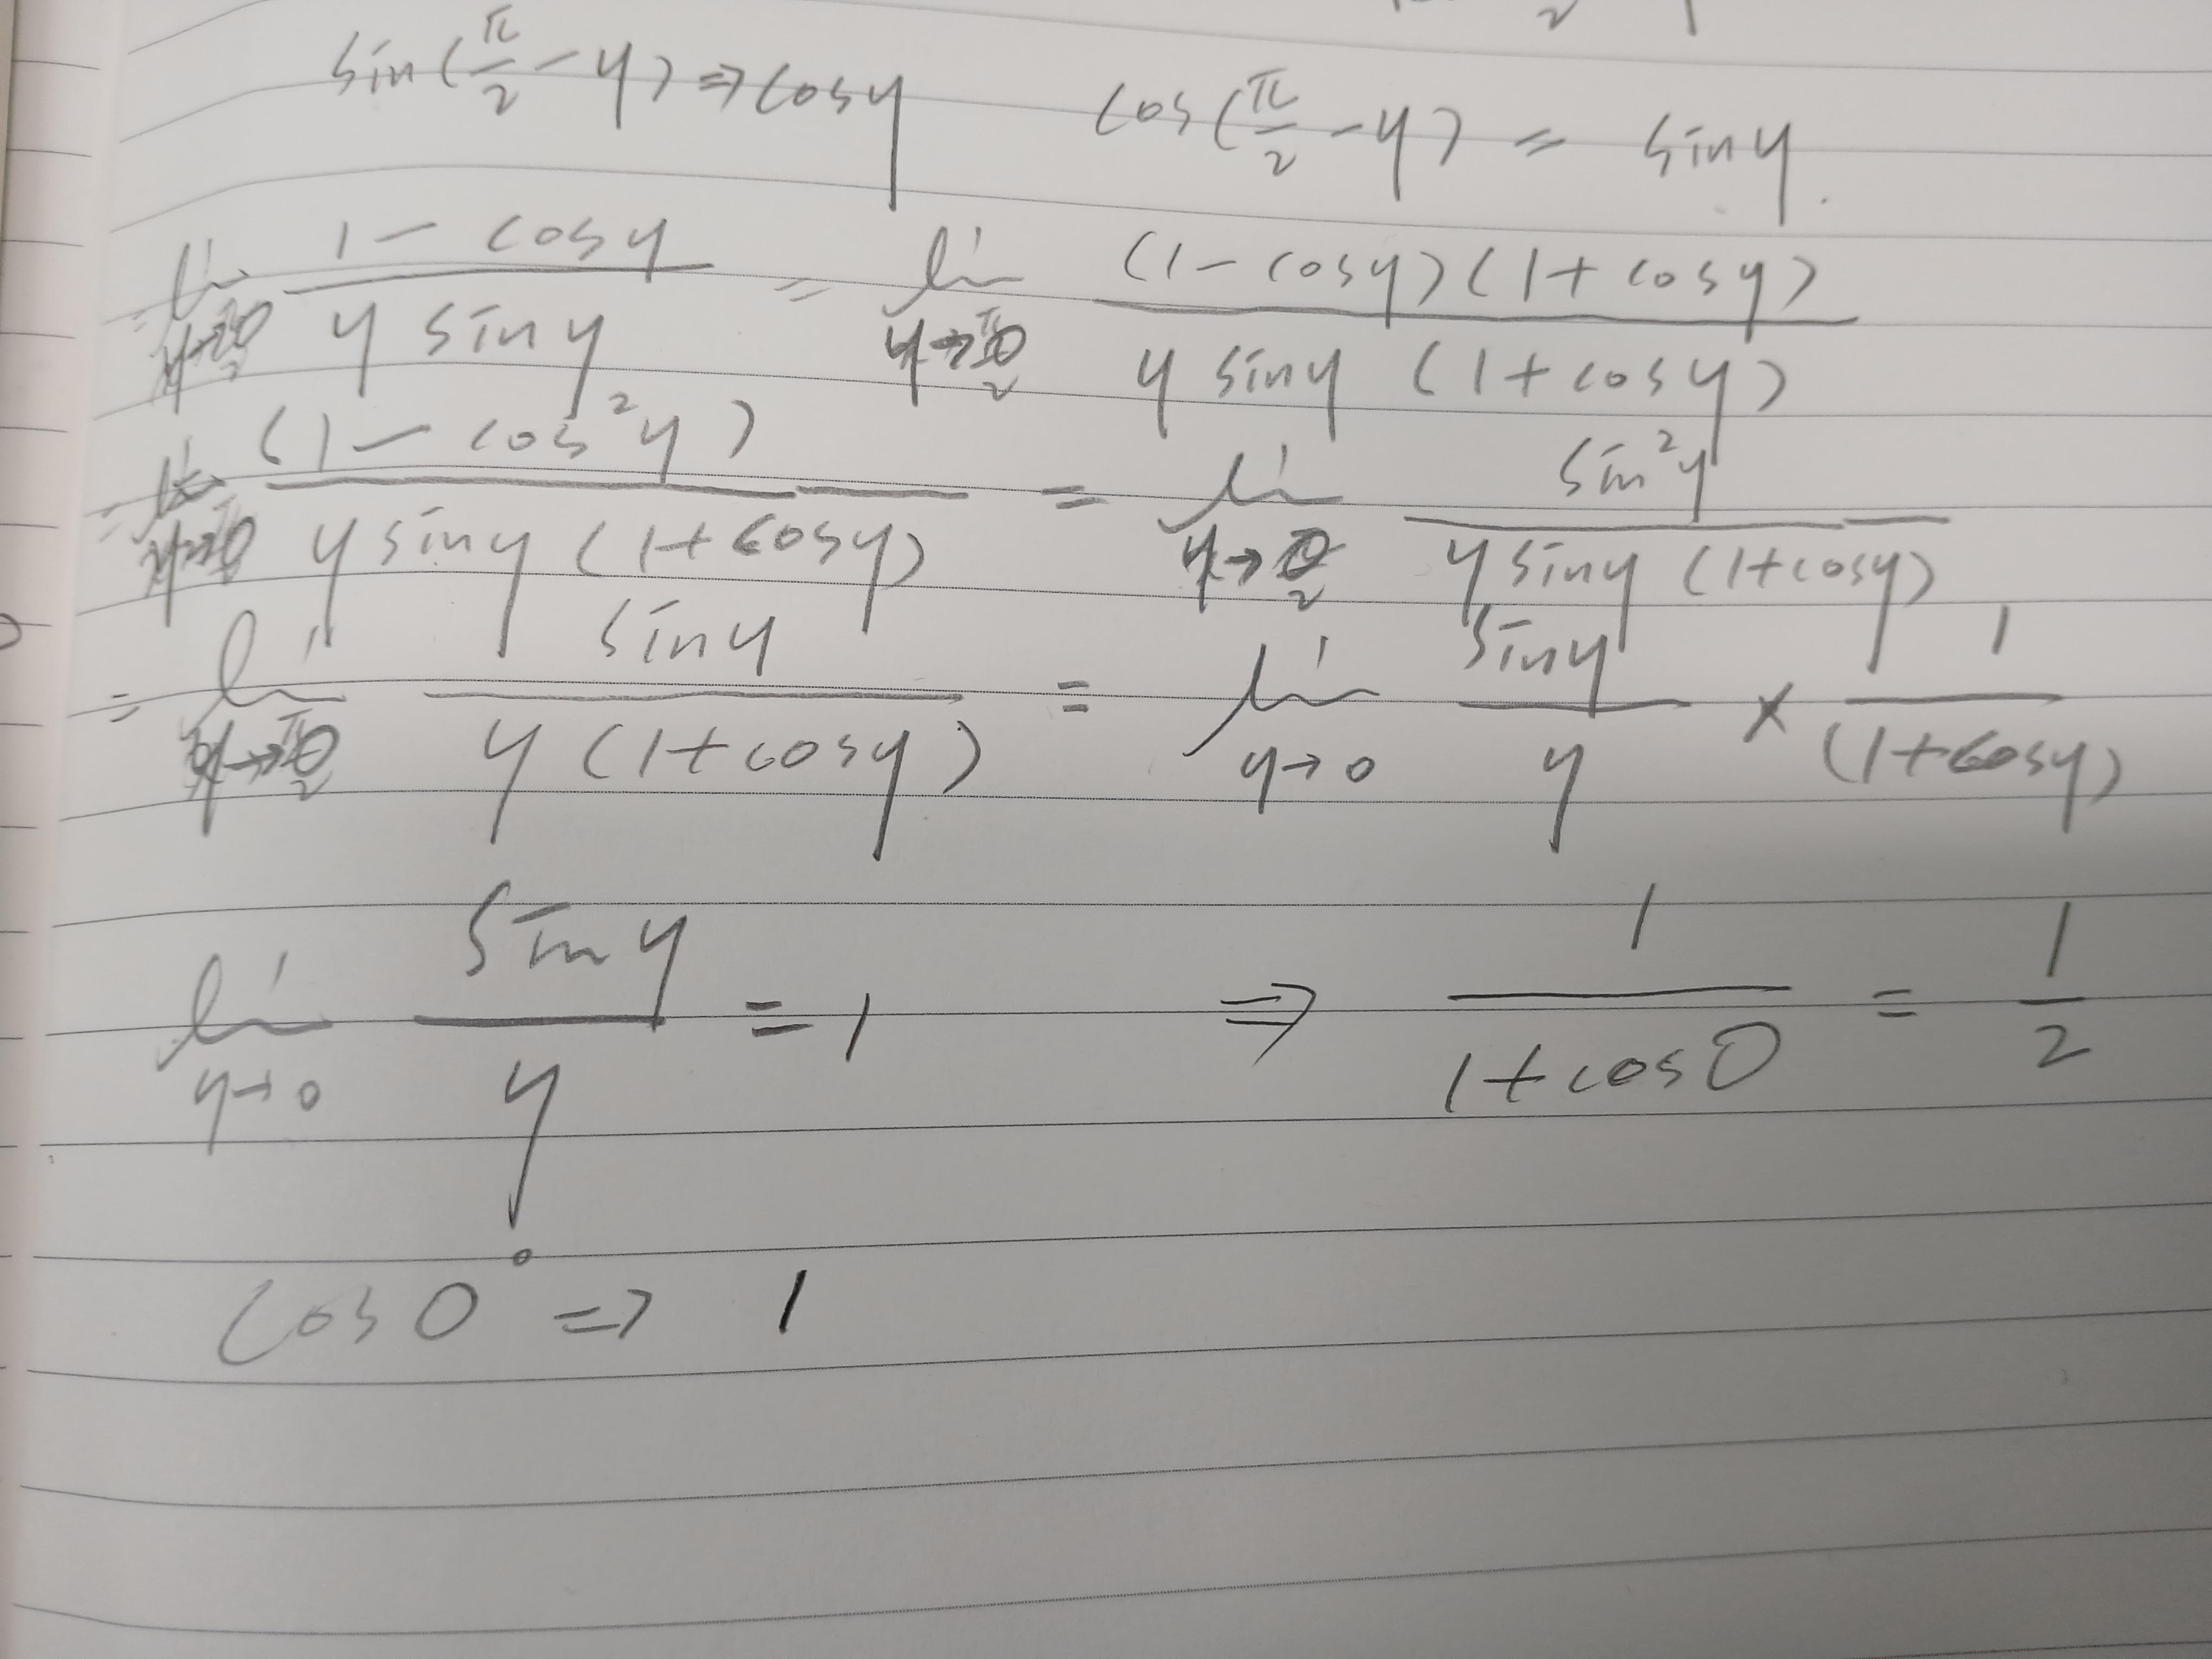 sin(π/2 - y) ⇒ cosy cos(π/2 - y) = siny.
= lim y→0 (1 - cosy)/(y siny) = lim y→0 ((1 - cosy)(1 + cosy))/(y siny (1 + cosy))
= lim y→0 (1 - cos²y)/(y siny (1 + cosy)) = lim y→0 sin²y/(y siny (1+cosy))
= lim y→0 siny/(y (1+cosy)) = lim y→0 siny/y × 1/(1+cosy)
lim y→0 siny/y = 1 ⇒ 1/(1+cos0) = 1/2
cos0° ⇒ 1